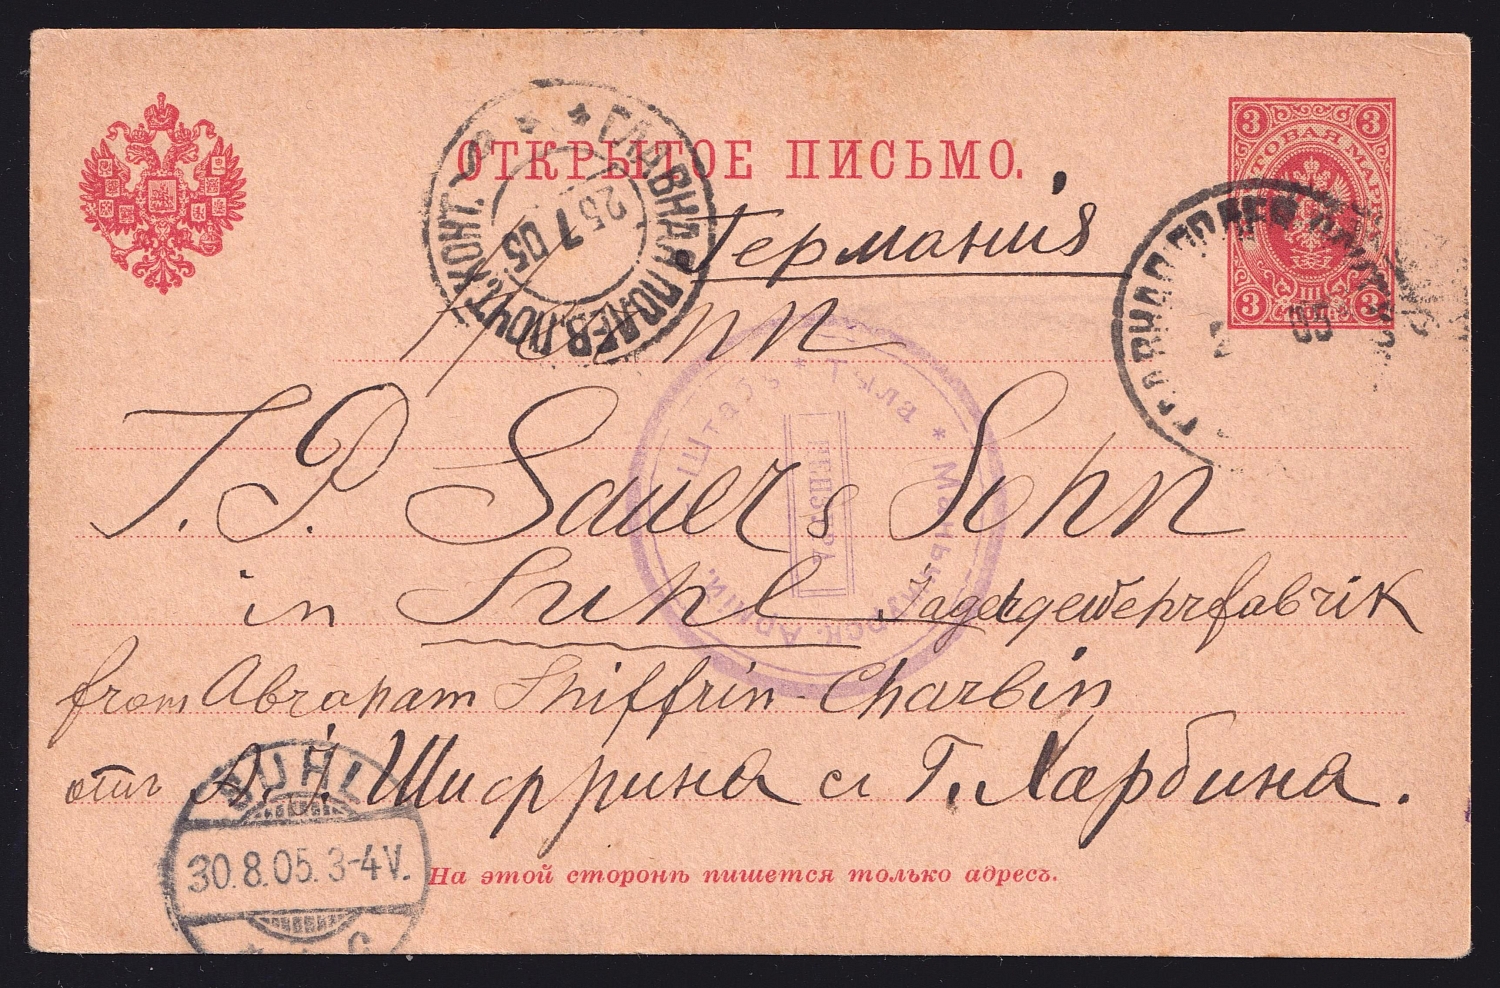 ОТКРЫТОЕ ПИСЬМО.
3 3
ПОЧТОВАЯ МАРКА
3 3
ГЛАВНАЯ ПОЛЕВ. ПОЧТ. КОНТ.
25 7 05
Германія
05
Штабъ * Тыла * Маньчжурск. Арміи.
ЦЕНЗУРА
J. P. Sauer & Sohn
in Suhl Jagdgewehrfabrik
from Abraham Shiffrin - Charbin
отъ А. І. Шиффрина съ Г. Харбина.
SUHL
30.8.05. 3-4V.
* c
На этой сторонѣ пишется только адресъ.